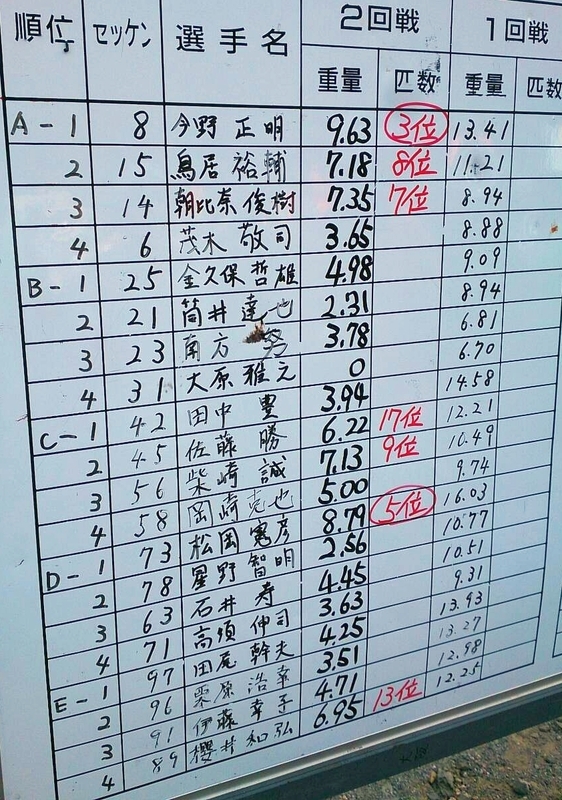 順位 ゼッケン 選手名 2回戦 1回戦
重量 匹数 重量 匹数
A-1 8 今野 正明 9.63 3位 13.41
2 15 鳥居 裕輔 7.18 8位 11.21
3 14 朝比奈 俊樹 7.35 7位 8.94
4 6 茂木 敬司 3.65 8.88
B-1 25 金久保 哲雄 4.98 9.09
2 21 筒井 達也 2.31 8.94
3 23 南方 努 3.78 6.81
4 31 大原 雅元 0 6.70
C-1 42 田中 豊 3.94 14.58
2 45 佐藤 勝 6.22 17位 12.21
3 56 柴崎 誠 7.13 9位 10.49
4 58 岡崎 克也 5.00 9.74
D-1 73 松岡 憲彦 8.79 5位 16.03
2 78 星野 智明 2.56 10.77
3 63 石井 寿 4.45 10.51
4 71 高須 伸司 3.63 9.31
E-1 97 田尾 幹夫 4.25 13.93
2 96 栗原 浩幸 3.51 13.27
3 91 伊藤 幸子 4.71 12.98
4 89 櫻井 和弘 6.95 13位 12.25